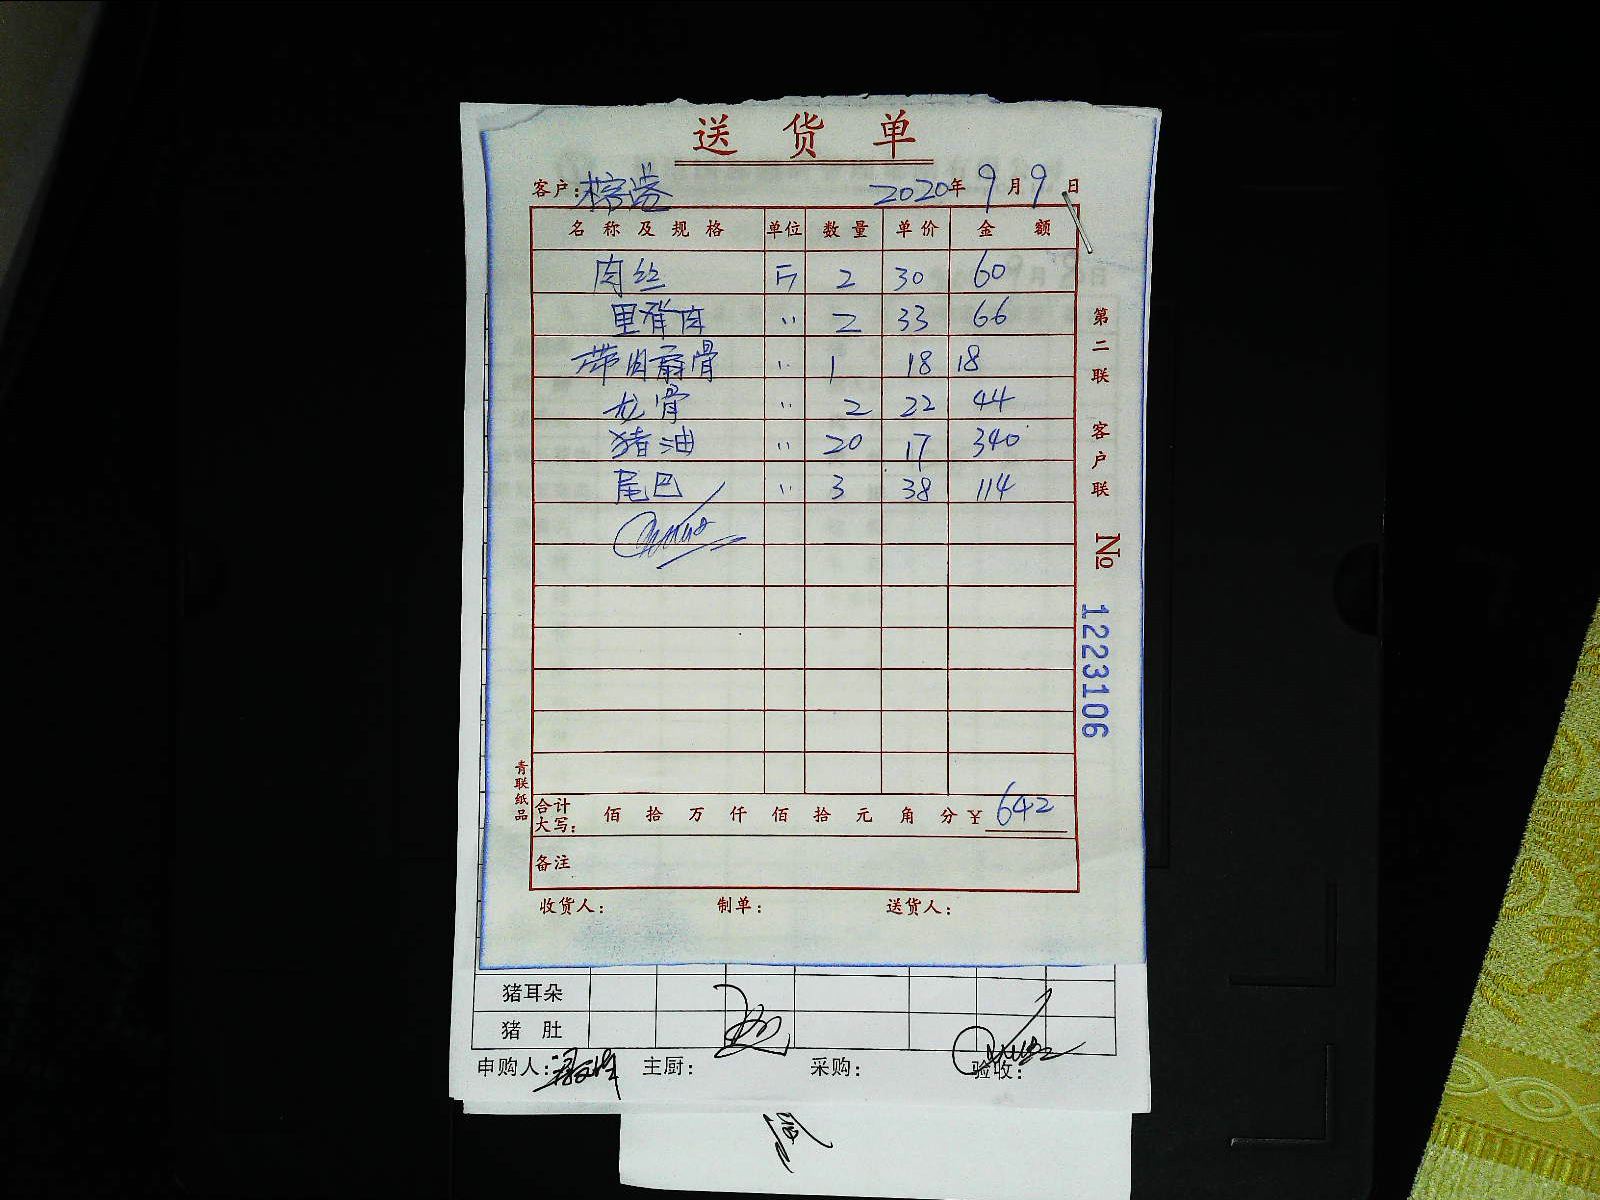 送货单
客户: 榕港 2020年9月9日
名称及规格 单位 数量 单价 金额
肉丝 斤 2 30 60
里脊肉 〃 2 33 66
带肉扇骨 〃 1 18 18
龙骨 〃 2 22 44
猪油 〃 20 17 340
尾巴 〃 3 38 114
合计大写: 佰 拾 万 仟 佰 拾 元 角 分 ¥ 642
备注
收货人: 制单: 送货人:
第二联 客户联 No 1223106
青联纸品
猪耳朵
猪 肚
申购人: 主厨: 采购: 验收: